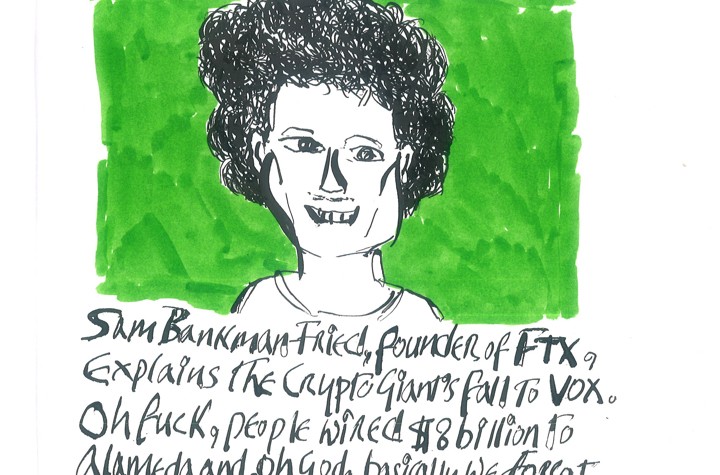 Sam Bankman-Fried, founder of FTX,
Explains the Crypto Giant's fall To VOX.
Oh fuck, people wired $8 billion to
Alameda and oh God, basically we forgot